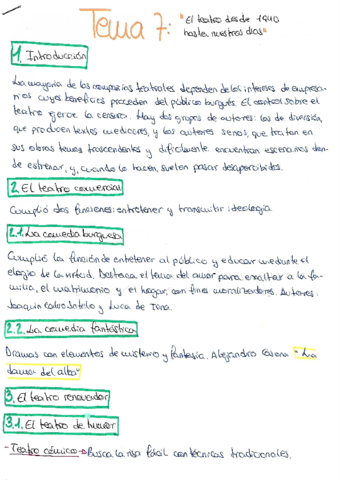 Tema 7: "El teatro desde 1940
hasta nuestros días"
1. Introducción
La mayoría de las compañías teatrales dependen de los intereses de empresa-
rios cuyos beneficios proceden del público burgués. El control sobre el
teatro ejerce la censura. Hay dos grupos de autores: los de diversión,
que producen textos mediocres, y los autores serios, que tratan en
sus obras temas trascendentes y difícilmente encuentran escenarios don-
de estrenar, y, cuando lo hacen suelen pasar desapercibidos.
2. El teatro comercial
Cumplió dos funciones: entretener y transmitir ideología
2.1. La comedia burguesa
Cumplió la función de entretener al público y educar mediante el
elogio de la virtud. Destaca el tema del amor para exaltar a la fa-
milia, el matrimonio y el hogar, con fines moralizadores. Autores:
Joaquín Calvo Sotelo y Luca de Tena.
2.2. La comedia fantástica
Dramas con elementos de misterio y fantasía. Alejandro Casona "La
dama del alba"
3. El teatro renovador
3.1. El teatro de humor
- Teatro cómico → Busca la risa fácil con técnicas tradicionales.